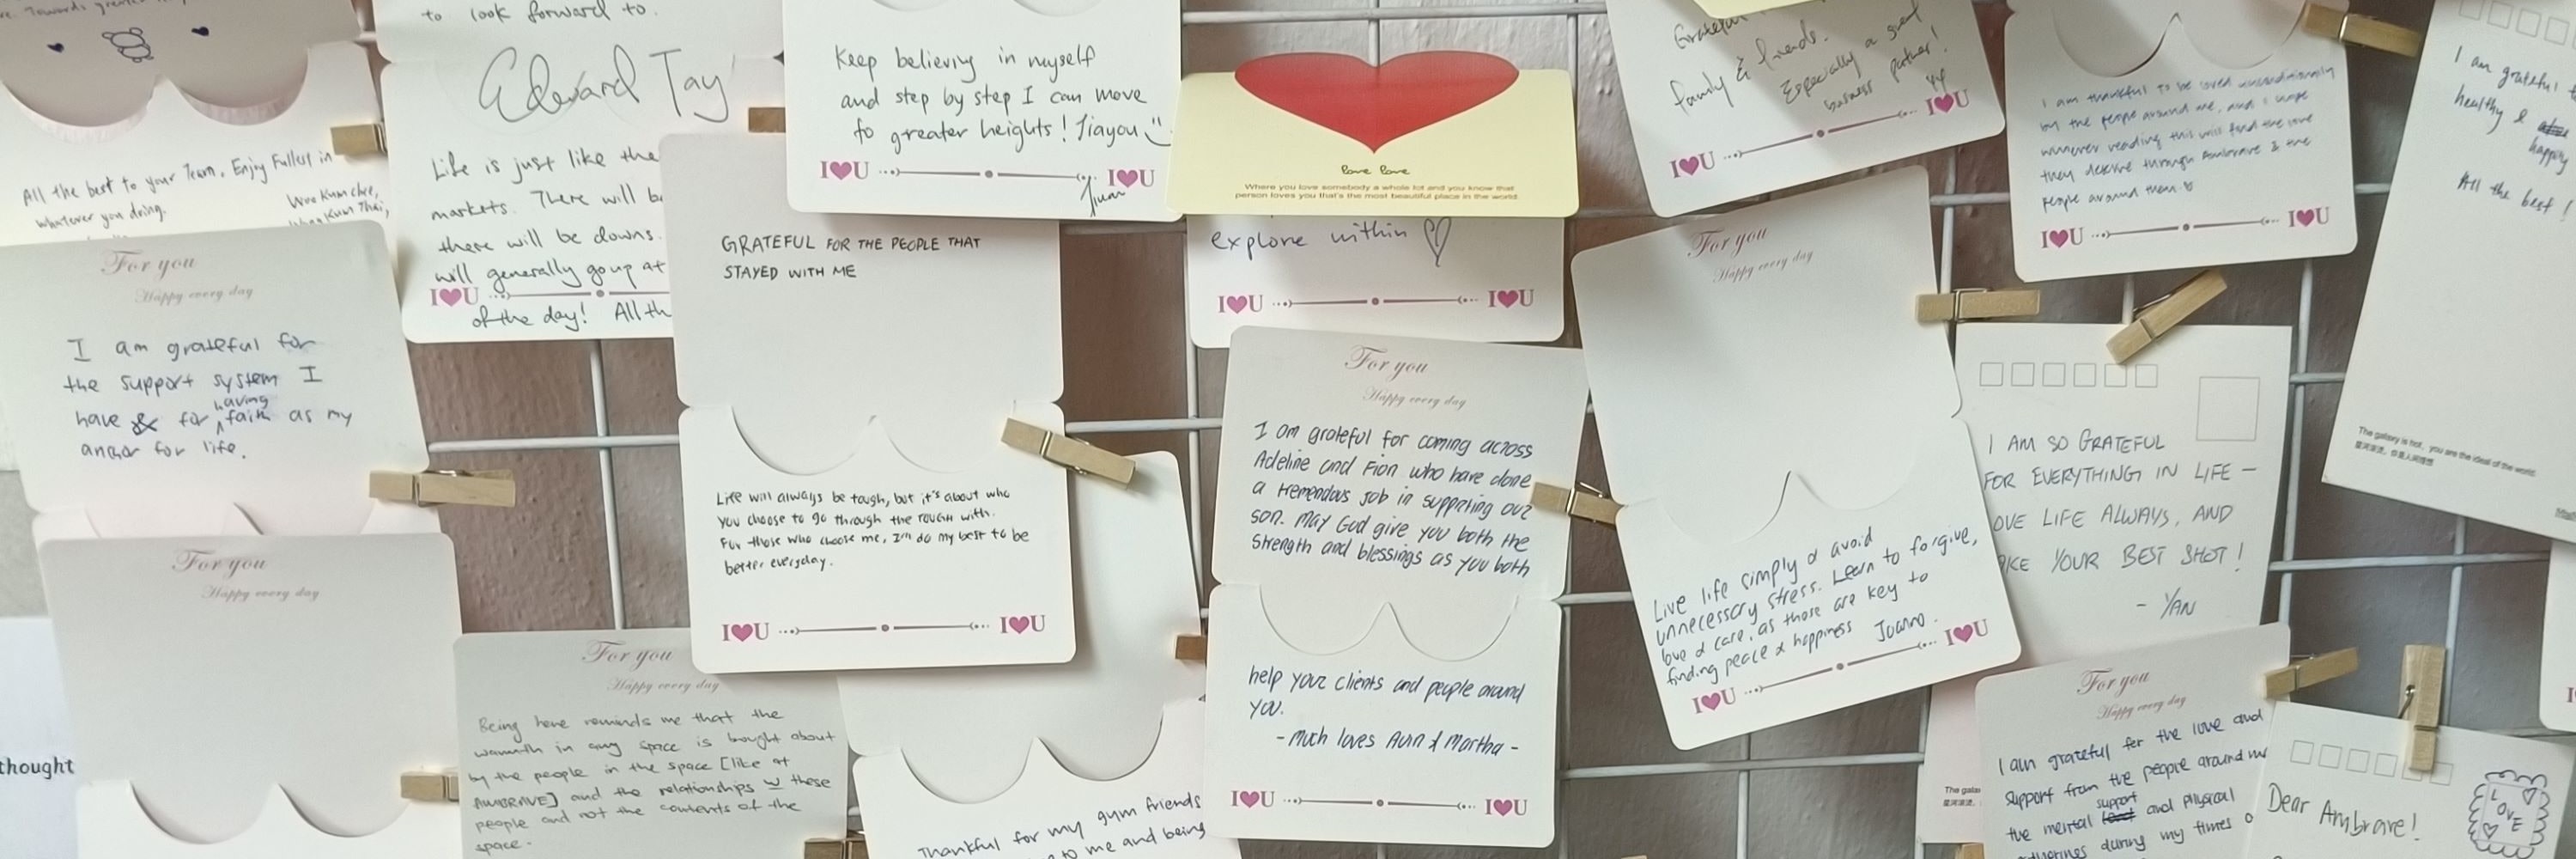 to look forward to.
Edward Tay
Life is just like the
markets. There will b
there will be downs.
will generally go up at
I U I
of the day! All th
All the best to your Team. Enjoy Fullest in
whatever you doing.
Woo Kum Chee,
Kum Thai,
For you
Happy every day
I am grateful for
the support system I
have & for having faith as my
anchor for life.
For you
Happy every day
thought
For you
Happy every day
Being here reminds me that the
warmth in any space is bought about
by the people in the space [like at
AMBRAVE] and the relationships w these
people and not the contents of the
space.
Keep believing in myself
and step by step I can move
to greater heights! Jiayou
I U I U
GRATEFUL FOR THE PEOPLE THAT
STAYED WITH ME
Life will always be tough, but it's about who
you choose to go through the rough with.
For those who choose me, I'll do my best to be
better everyday.
I U I U
Thankful for my gym friends
to me and being
love love
Where you love somebody a whole lot and you know that
person loves you that's the most beautiful place in the world
explore within
I U I U
For you
Happy every day
I am grateful for coming across
Adeline and Fion who have done
a tremendous job in supporting our
son. May God give you both the
strength and blessings as you both
help your clients and people around
you.
- Much loves Alvin & Martha -
I U I U
Grateful
family & friends.
Especially a great
business partner!
I U I U
For you
Happy every day
Live life simply & avoid
unnecessary stress. Learn to forgive,
love & care, as those are key to
finding peace & happiness Joanno.
I U I U
I am thankful to be loved unconditionally
by the people around me, and I hope
whoever reading this will find the love
they deserve through Ambrave & the
people around them.
I U I U
I AM SO GRATEFUL
FOR EVERYTHING IN LIFE —
OVE LIFE ALWAYS, AND
AKE YOUR BEST SHOT!
- YAN
I am grateful
healthy &
happy
All the best!
The galaxy is hot, you are the ideal of the world
For you
Happy every day
I am grateful for the love and
support from the people around me
the mental support and physical
during my times o
The gala
Dear Ambrave!
LOVE